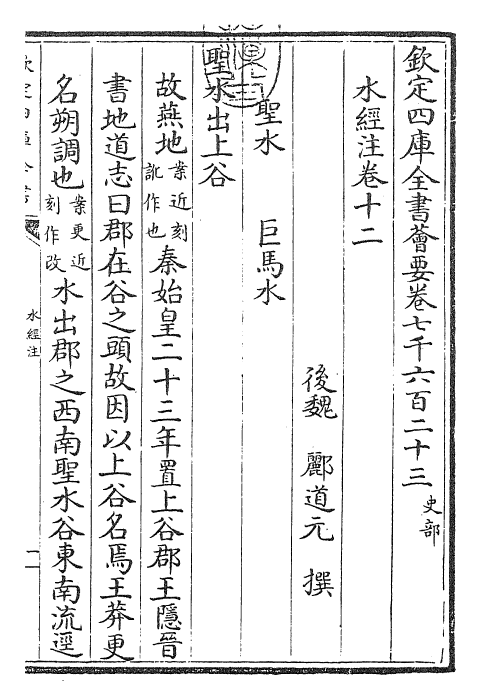 欽定四庫全書薈要卷七千六百二十三 史部
水經注卷十二
後魏 酈道元 撰
聖水 巨馬水
聖水出上谷
故燕地案近刻訛作也秦始皇二十三年置上谷郡王隱晉
書地道志曰郡在谷之頭故因以上谷名焉王莽更
名朔調也案更近刻作改水出郡之西南聖水谷東南流逕
水經注
一